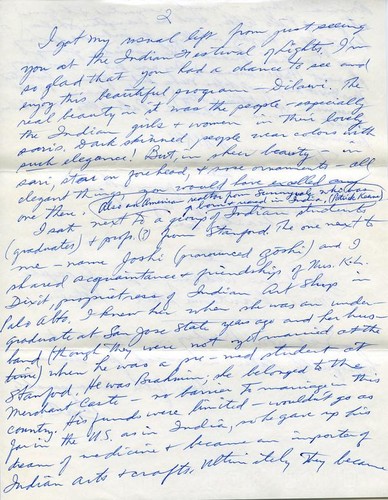 2
I got my usual lift from just seeing
you at the Indian Festival of Lights. I'm
so glad that you had a chance to see and
enjoy this beautiful program - Dilawi. The
real beauty in it was the people - especially
the Indian girls & women in their lovely
saris. Dark skinned people wear colors with
such elegance! But, in sheer beauty - in
sari, star on forehead, & some ornaments - all
elegant things - you would have excelled any
one there. (Also an American realtor from Sunnyvale who was
born & reared in India.
I sat next to a group of Indian students
(graduates) & profs. (?) from Stanford. The one next to
me - name Joshi (pronounced Zoshi) and I
shared acquaintance & friendship of Mrs. K.
Dixit, proprietress of Indian Art Shop in
Palo Alto. I knew her when she was an under-
graduate at San Jose State years ago and her hus-
band (though they were not yet married at the
time) when he was a pre-med student at
Stanford. He was Brahmin; she belonged to the
Merchant Caste - no barrier to marriage in this
country. His funds were limited - wouldn't go as
far in the U.S. as in India, so he gave up his
dream of medicine & became an importer of
Indian arts & crafts. Ultimately they became